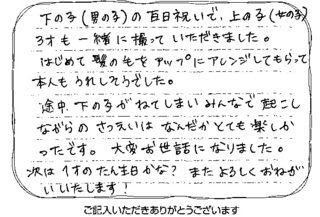 下の子(男の子)の百日祝いで、上の子(女の子)
3才も一緒に撮っていただきました。
はじめて髪の毛をアップにアレンジしてもらって
本人もうれしそうでした。
途中、下の子がねてしまいみんなで起こし
ながらのさつえいはなんだかとても楽しか
ったです。大変お世話になりました。
次は1才のたん生日かな? またよろしくおねが
いいたします!
ご記入いただきありがとうございます